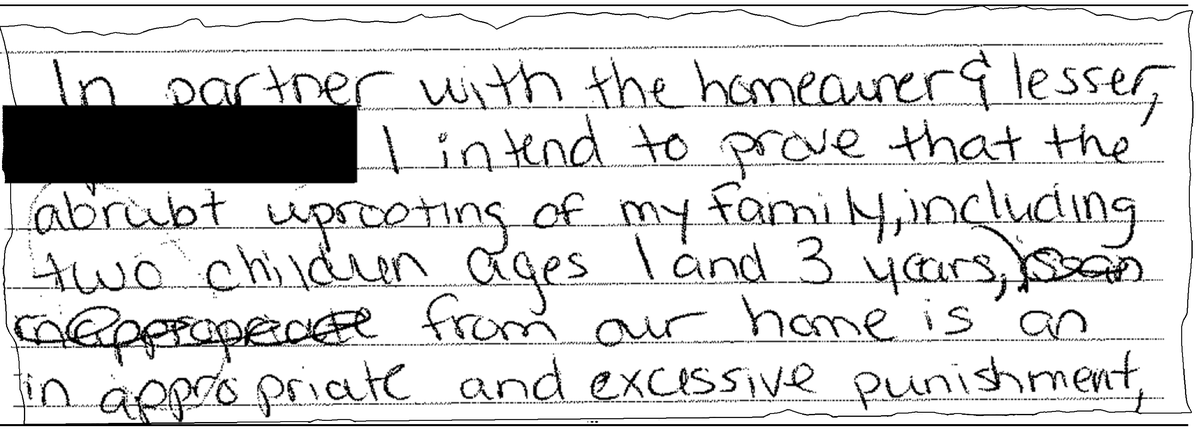 In partner with the homeowner & lesser,
I intend to prove that the
abrubt uprooting of my family, including
two children ages 1 and 3 years,
from our home is an
inappropriate and excessive punishment,